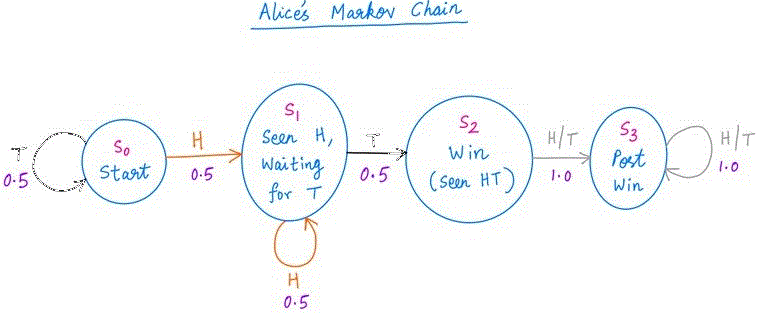 Alice's Markov Chain
T
0.5
S0
Start
H
0.5
S1
Seen H,
Waiting
for T
H
0.5
T
0.5
S2
Win
(Seen HT)
H/T
1.0
S3
Post
Win
H/T
1.0